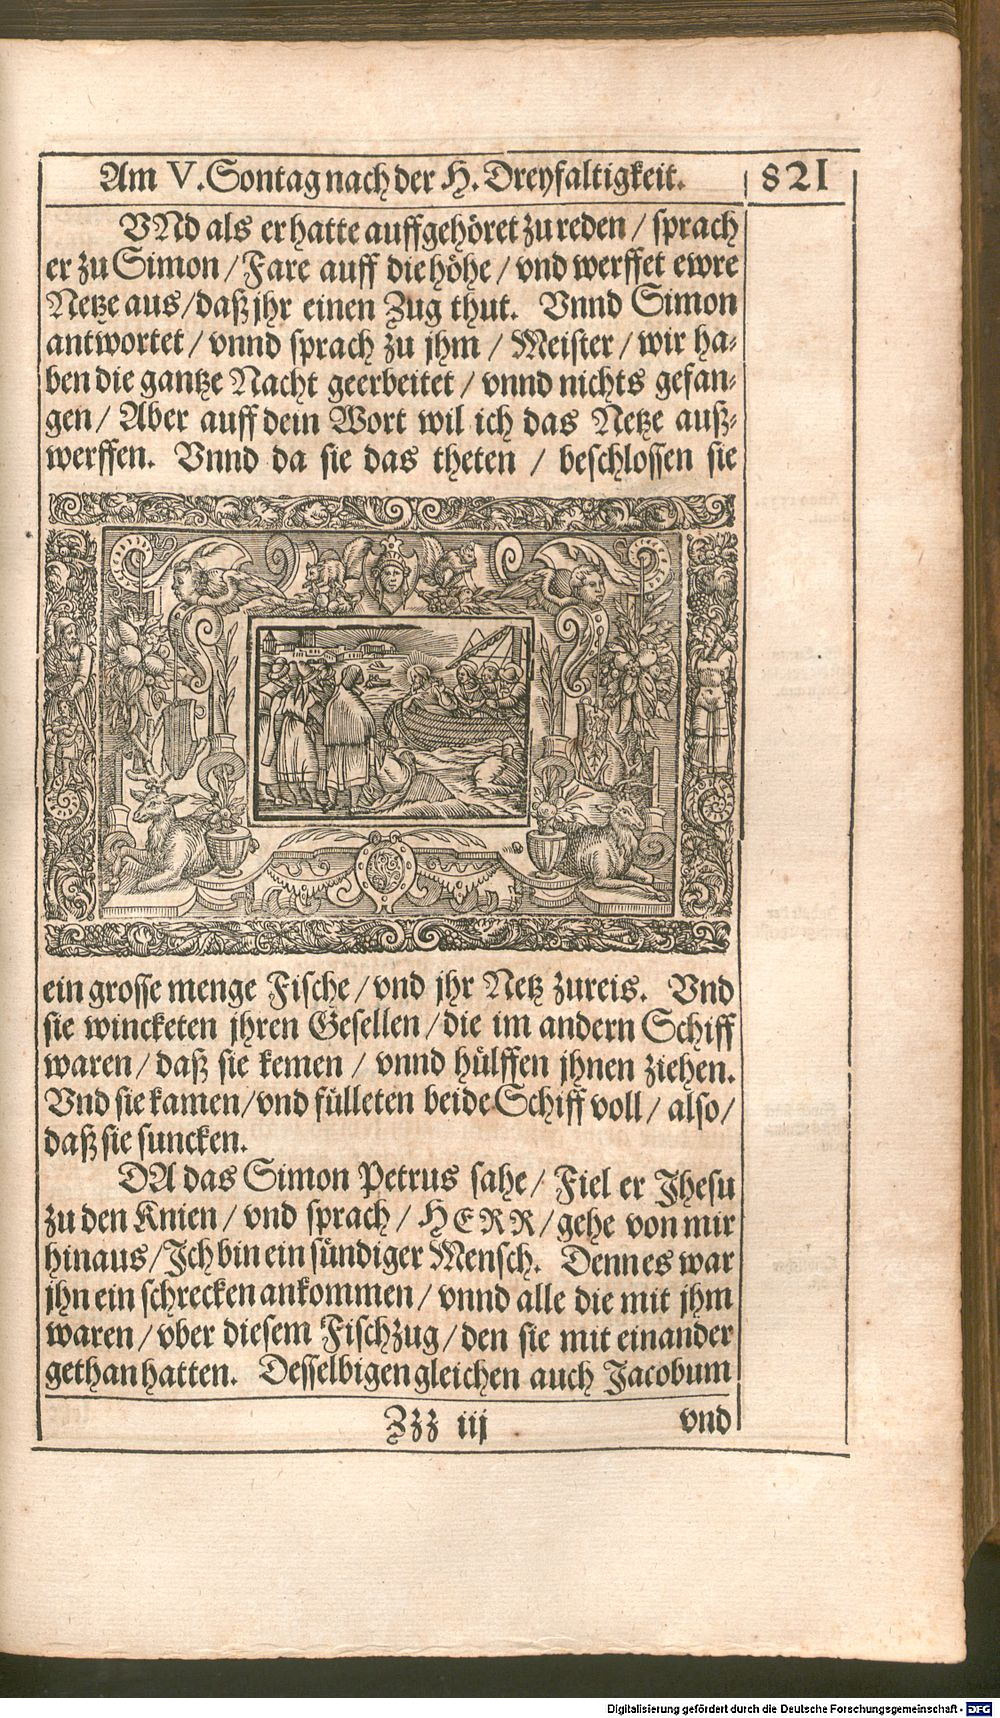 Am V. Sontag nach der H. Dreyfaltigkeit. 821
VNd als er hatte auffgehöret zu reden / sprach
er zu Simon / Fare auff die höhe / vnd werffet ewre
Netze aus / daß jhr einen Zug thut. Vnnd Simon
antwortet / vnnd sprach zu jhm / Meister / wir ha-
ben die gantze Nacht geerbeitet / vnnd nichts gefan-
gen / Aber auff dein Wort wil ich das Netze auß-
werffen. Vnnd da sie das theten / beschlossen sie
ein grosse menge Fische / vnd jhr Netz zureis. Vnd
sie wincketen jhren Gesellen / die im andern Schiff
waren / daß sie kemen / vnnd hülffen jhnen ziehen.
Vnd sie kamen / vnd fülleten beide Schiff voll / also /
daß sie suncken.
DA das Simon Petrus sahe / Fiel er Jhesu
zu den Knien / vnd sprach / HERR / gehe von mir
hinaus / Ich bin ein sündiger Mensch. Denn es war
jhn ein schrecken ankommen / vnnd alle die mit jhm
waren / vber diesem Fischzug / den sie mit einander
gethan hatten. Desselbigen gleichen auch Jacobum
Zzz iij vnd
Digitalisierung gefördert durch die Deutsche Forschungsgemeinschaft - DFG